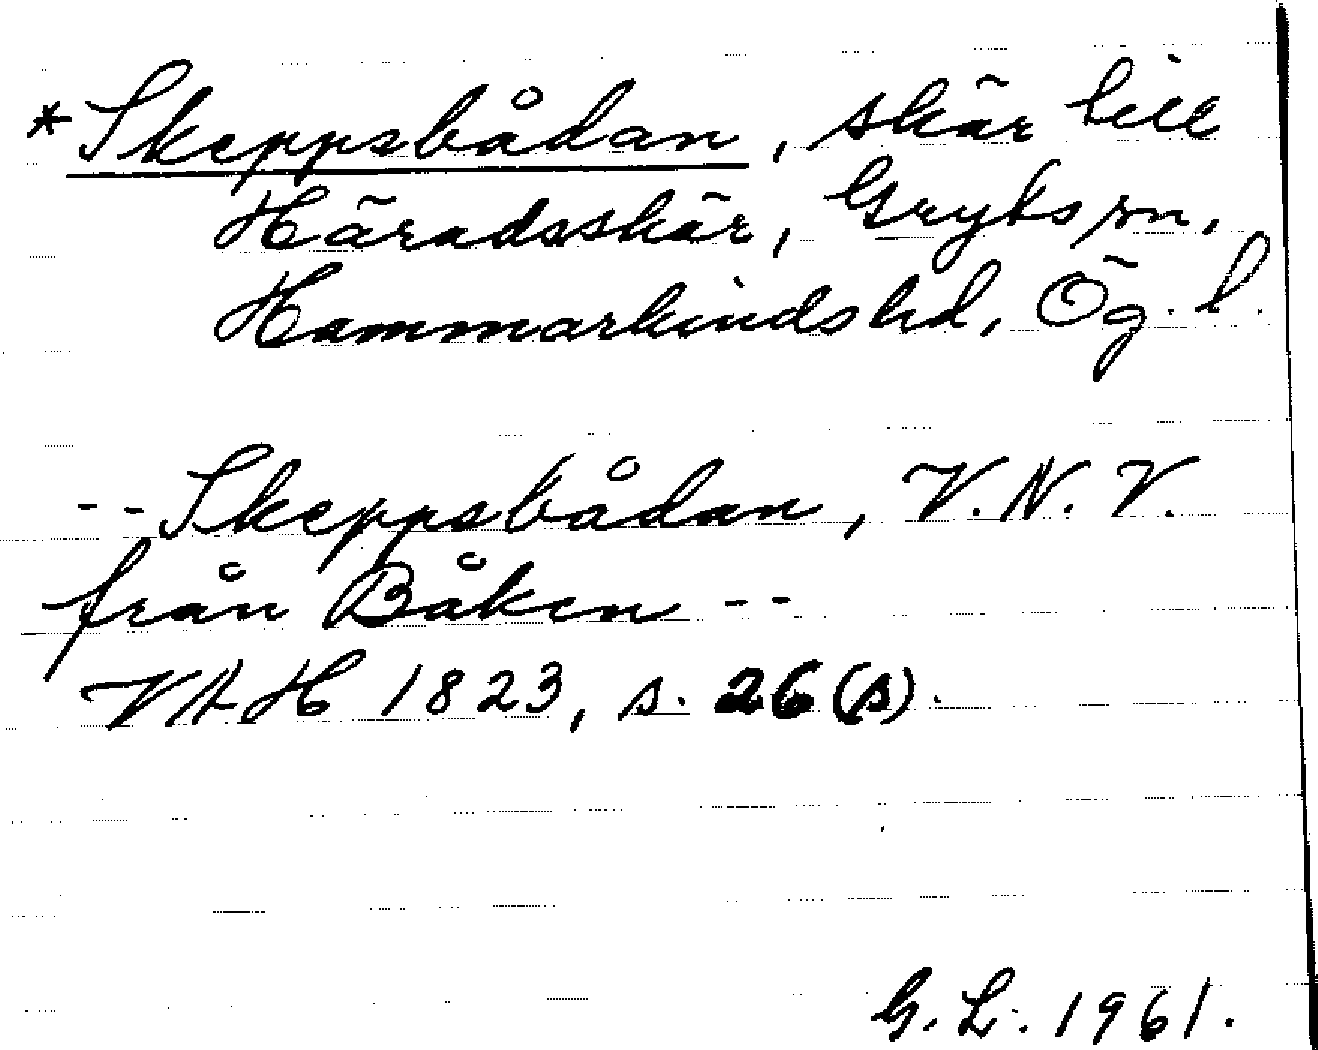 *Skeppsbådan, skär till
Häradsskär, Gryts sn,
Hammarkinds hd, Ög. l.
--Skeppsbådan, V.N.V.
från Båken --
VAH 1823, s. 26(s).
G.L. 1961.